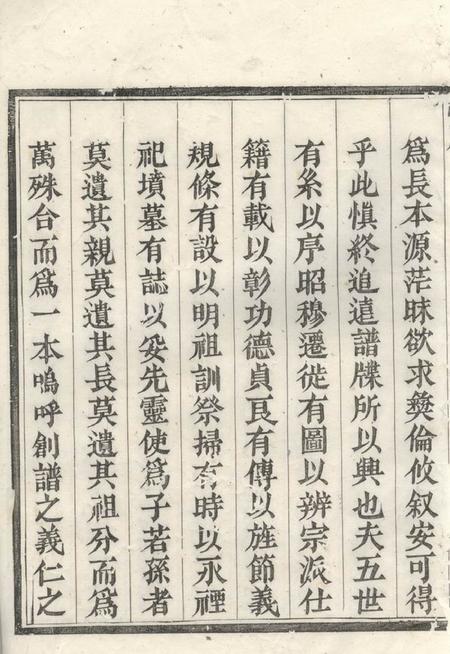 爲長本源茫昧欲求彜倫攸叙安可得
乎此愼終追遠譜牒所以興也夫五世
有系以序昭穆遷徙有圖以辨宗派仕
籍有載以彰功德貞良有傳以旌節義
規條有設以明祖訓祭掃有時以永禋
祀墳墓有誌以妥先靈使爲子若孫者
莫遺其親莫遺其長莫遺其祖分而爲
萬殊合而爲一本嗚呼創譜之義仁之